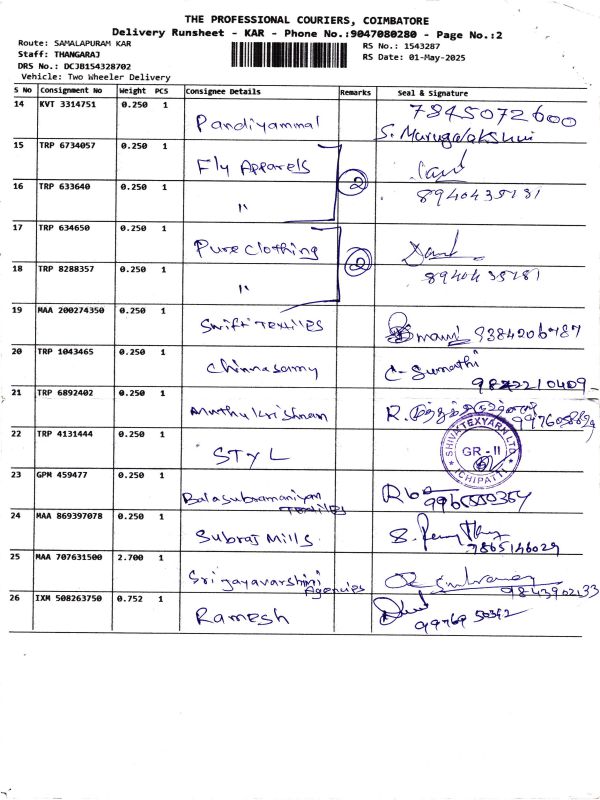 THE PROFESSIONAL COURIERS, COIMBATORE
Delivery Runsheet - KAR - Phone No.:9047080280 - Page No.:2
Route: SAMALAPURAM KAR
RS No.: 1543287
Staff: THANGARAJ
RS Date: 01-May-2025
DRS No.: DCJB154328702
Vehicle: Two Wheeler Delivery
S No Consignment No Weight PCS Consignee Details Remarks Seal & Signature
14 KVT 3314751 0.250 1 Pandiyammal 7845072600
15 TRP 6734057 0.250 1 Fly Apparels
16 TRP 633640 0.250 1 " 2 8940435181
17 TRP 634650 0.250 1 Pure Clothing
18 TRP 8288357 0.250 1 " 2 8940435181
19 MAA 200274350 0.250 1 Swift Textiles
20 TRP 1043465 0.250 1 Chinnasamy C. Sumathi
21 TRP 6892402 0.250 1 Muthukrishnan
22 TRP 4131444 0.250 1 STYL
SHIVA TEXYARN LTD.
GR - II
ICHIPATTI
23 GPM 459477 0.250 1 Balasubramaniyam Textiles
24 MAA 869397078 0.250 1 Subraj Mills 7865146029
25 MAA 707631500 2.700 1 Sri jayavarshini Agencies 9843902133
26 IXM 508263750 0.752 1 Ramesh